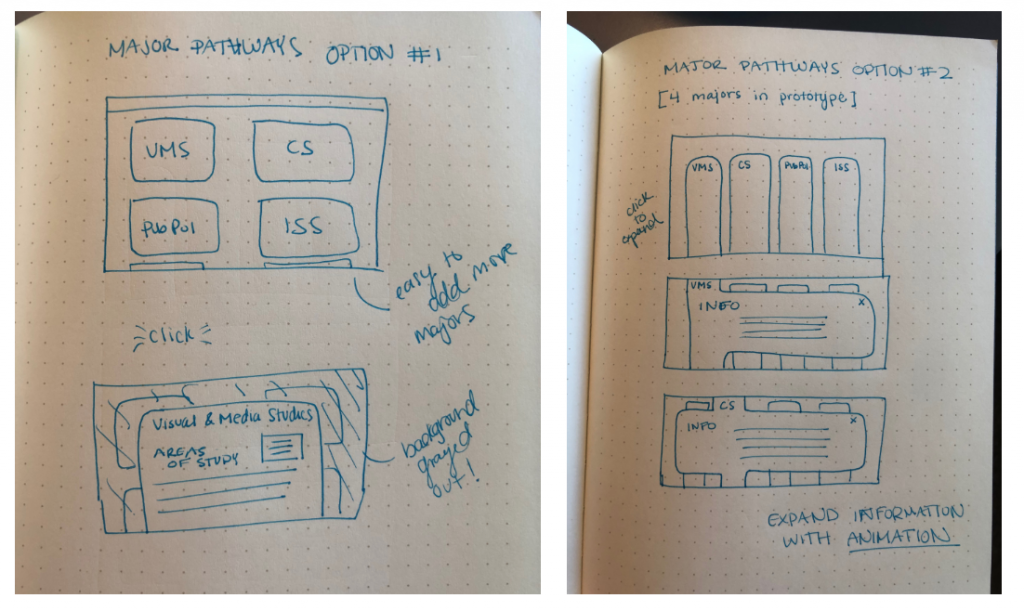 MAJOR PATHWAYS OPTION #1
VMS
CS
PubPol
ISS
easy to
add more
majors
click
Visual & Media Studies
AREAS
OF STUDY
background
grayed
out!
MAJOR PATHWAYS OPTION #2
[4 majors in prototype]
VMS
CS
PubPol
ISS
click
to
expand
VMS
INFO
x
CS
INFO
x
EXPAND INFORMATION
WITH ANIMATION